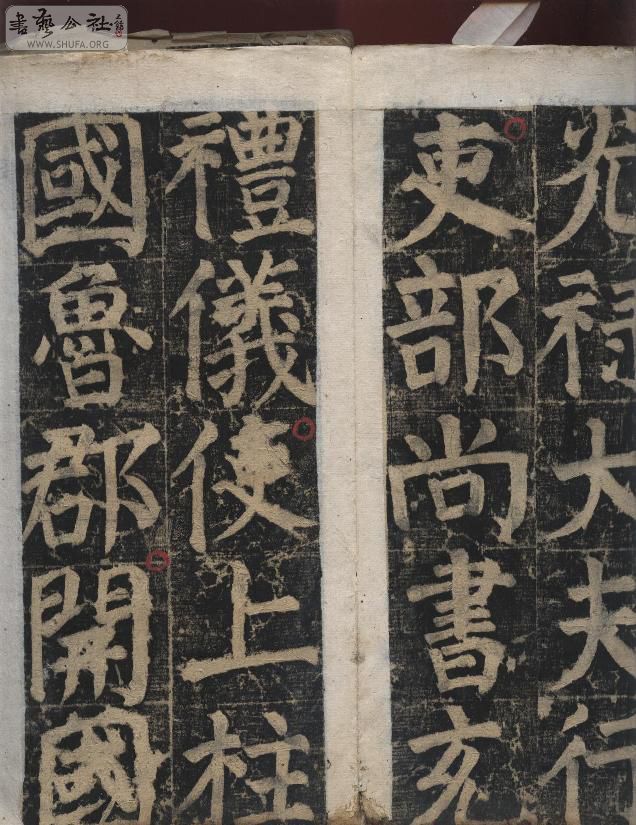 書藝公社
WWW.SHUFA.ORG
光祿大夫行
吏部尚書充
禮儀使上柱
國魯郡開國